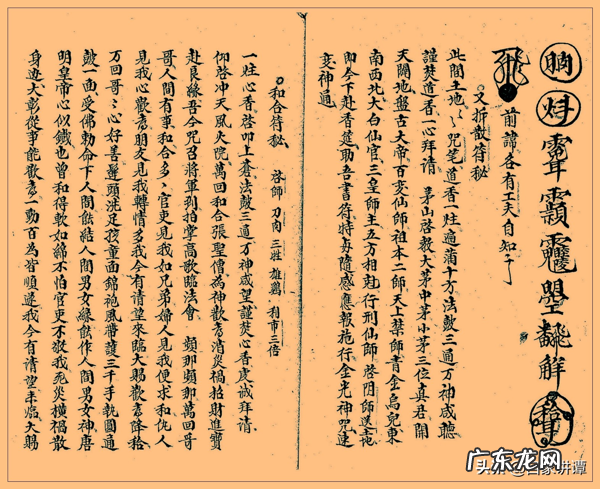 飛 前諱各有工夫自知了
又拆散符秘
此間土地〻咒笔道香一炷遍蒲十方法鼓三通万神咸聽
謹焚道香一心拜請 茅山啓教大茅中茅小茅三位真君開
天闢地盤古大帝百变仙師祖本二師天上禁師青金烏兔東
南西北大白仙官三皇師主五方相赴行刑仙師陰司師
即今下赴香筵助吾書符持与隨感應報施行金光神咒速
变神通
和合符秘 啓師 刀肉 三牲 雄鷄 利市三倍
一炷心香啓叩上蒼法鼓三通万神咸望謹焚心香虔誠拜請
仰啓冲天風火院萬回和合張聖僧為神歡喜消災禍招財進寶
赴良緣吾今咒召將軍到拍掌高歌臨法會 頻那頻那萬回哥
哥人間有事和合多官吏見我如兄弟婦人見我便求和仇人
見我心歡喜朋友見我轉情多我今有請望來臨大賜歡喜降
万回哥〻心好善蓬頭洗足孩童面錦袍風帶護三千手執圓通
鼓一面受佛勅命下人間能結人間男女緣能作人間男女神唐
明皇帝心似鐵也曾和得軟如綿不怕官吏不敬我死災横禍散
身边大彰從事能歡喜一動百為皆順遂我今有請望來臨大賜
头条 @百家讲谭
广东龙网